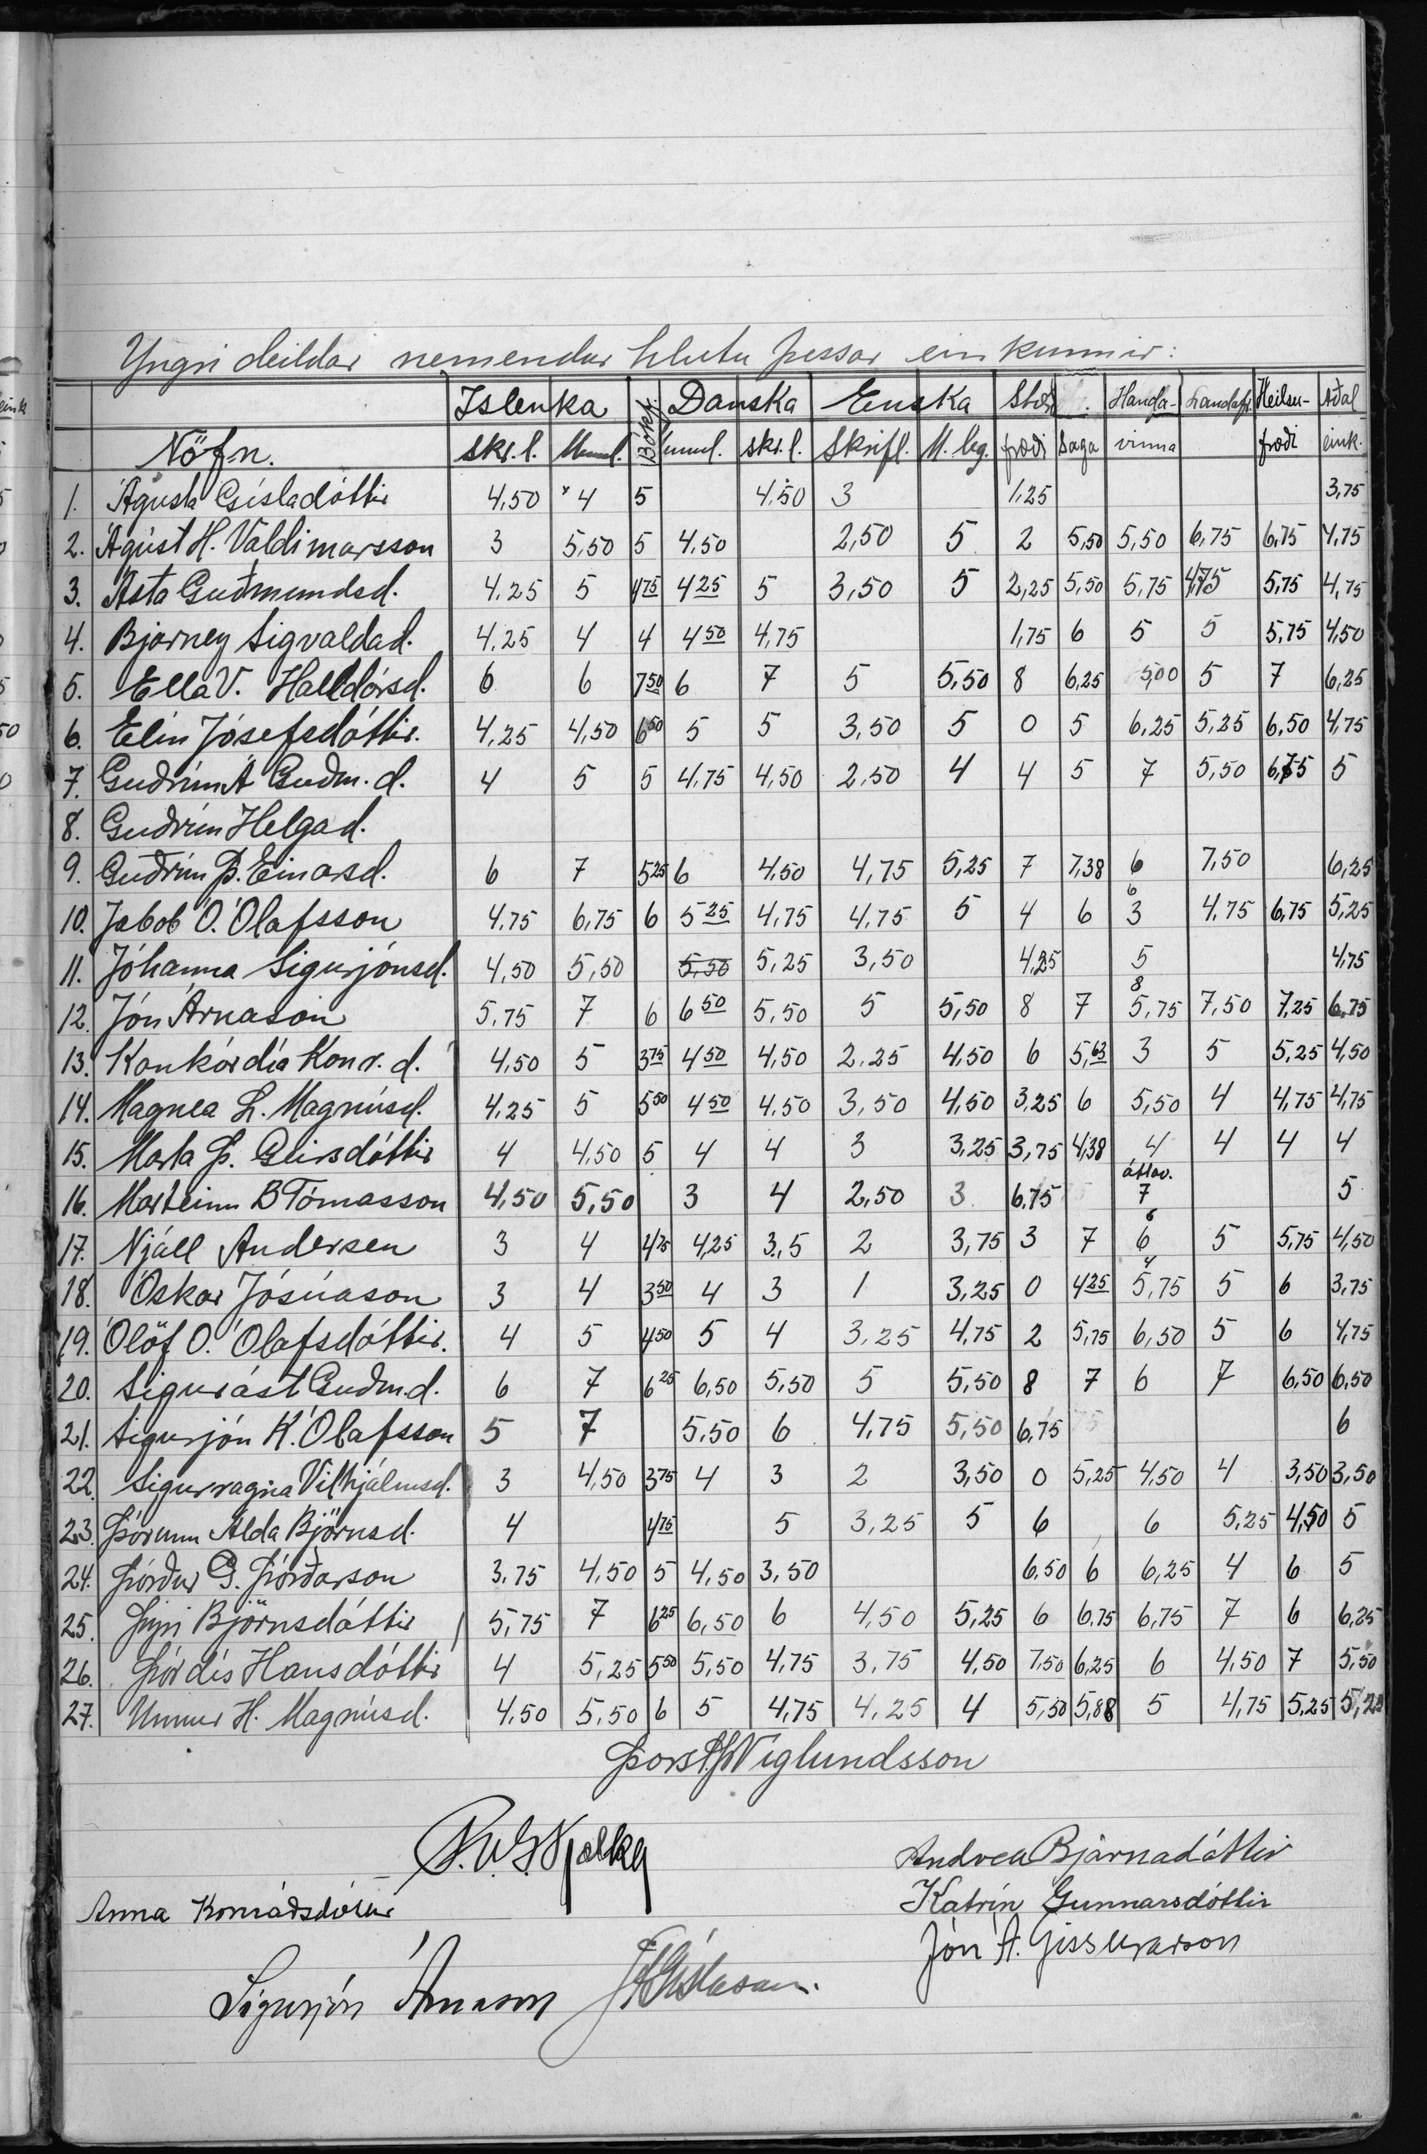 Yngri deildar nemendur hlutu þessar einkunnir:
Íslenka Bókf. Danska Enska Stærð Handa- Landafr. Heilsu- Aðal
Nöfn. skr.l. Munnl. munnl. skr.l. Skrifl. M.leg. fræði Saga vinna fræði eink.
1. Ágústa Gísladóttir 4,50 4 5 4,50 3 1,25 3,75
2. Ágúst H. Valdimarsson 3 5,50 5 4,50 2,50 5 2 5,50 5,50 6,75 6,75 4,75
3. Ásta Guðmundsd. 4,25 5 4,75 4,25 5 3,50 5 2,25 5,50 5,75 4,75 5,75 4,75
4. Bjarney Sigvaldad. 4,25 4 4 4,50 4,75 1,75 6 5 5 5,75 4,50
5. Ella V. Halldórsd. 6 6 7,50 6 7 5 5,50 8 6,25 5,00 5 7 6,25
6. Elín Jósefsdóttir. 4,25 4,50 6,50 5 5 3,50 5 0 5 6,25 5,25 6,50 4,75
7. Guðrún Á Guðm.d. 4 5 5 4,75 4,50 2,50 4 4 5 7 5,50 6,75 5
8. Guðrún Helgad.
9. Guðrún Þ. Einarsd. 6 7 5,25 6 4,50 4,75 5,25 7 7,38 6 7,50 6,25
10. Jakob Ó. Ólafsson 4,75 6,75 6 5,25 4,75 4,75 5 4 6 6 3 4,75 6,75 5,25
11. Jóhanna Sigurjónsd. 4,50 5,50 5,50 5,25 3,50 4,25 5 4,75
12. Jón Árnason 5,75 7 6 6,50 5,50 5 5,50 8 7 8 5,75 7,50 7,25 6,75
13. Konkórdía Konr.d. 4,50 5 3,75 4,50 4,50 2,25 4,50 6 5,63 3 5 5,25 4,50
14. Magnea L. Magnúsd. 4,25 5 5,50 4,50 4,50 3,50 4,50 3,25 6 5,50 4 4,75 4,75
15. Marta Þ. Geirsdóttir 4 4,50 5 4 4 3 3,25 3,75 4,38 4 4 4 4
16. Marteinn B Tómasson 4,50 5,50 3 4 2,50 3 6,75 7 5
17. Njáll Andersen 3 4 4,75 4,25 3,5 2 3,75 3 7 6 6 5 5,75 4,50
18. Óskar Jósúason 3 4 3,50 4 3 1 3,25 0 4,25 4 5,75 5 6 3,75
19. Ólöf O. Ólafsdóttir. 4 5 4,50 5 4 3,25 4,75 2 5,75 6,50 5 6 4,75
20. Sigurást Guðm.d. 6 7 6,25 6,50 5,50 5 5,50 8 7 6 7 6,50 6,50
21. Sigurjón K. Ólafsson 5 7 5,50 6 4,75 5,50 6,75 6
22. Sigurragna Vilhjálmsd. 3 4,50 3,75 4 3 2 3,50 0 5,25 4,50 4 3,50 3,50
23. Þórunn Alda Björnsd. 4 4,75 5 3,25 5 6 6 5,25 4,50 5
24. Þórður G. Þórðarson 3,75 4,50 5 4,50 3,50 6,50 6 6,25 4 6 5
25. Þyri Björnsdóttir 5,75 7 6,25 6,50 6 4,50 5,25 6 6,75 6,75 7 6 6,25
26. Þórdís Hansdóttir 4 5,25 5,50 5,50 4,75 3,75 4,50 7,50 6,25 6 4,50 7 5,50
27. Unnur H. Magnúsd. 4,50 5,50 6 5 4,75 4,25 4 5,50 5,88 5 4,75 5,25 5,25
Þorst. Þ Víglundsson
Andrea Bjarnadóttir
Katrín Gunnarsdóttir
Anna Konráðsdóttir
Jón Á. Gissurarson
Sigurjón Árnason